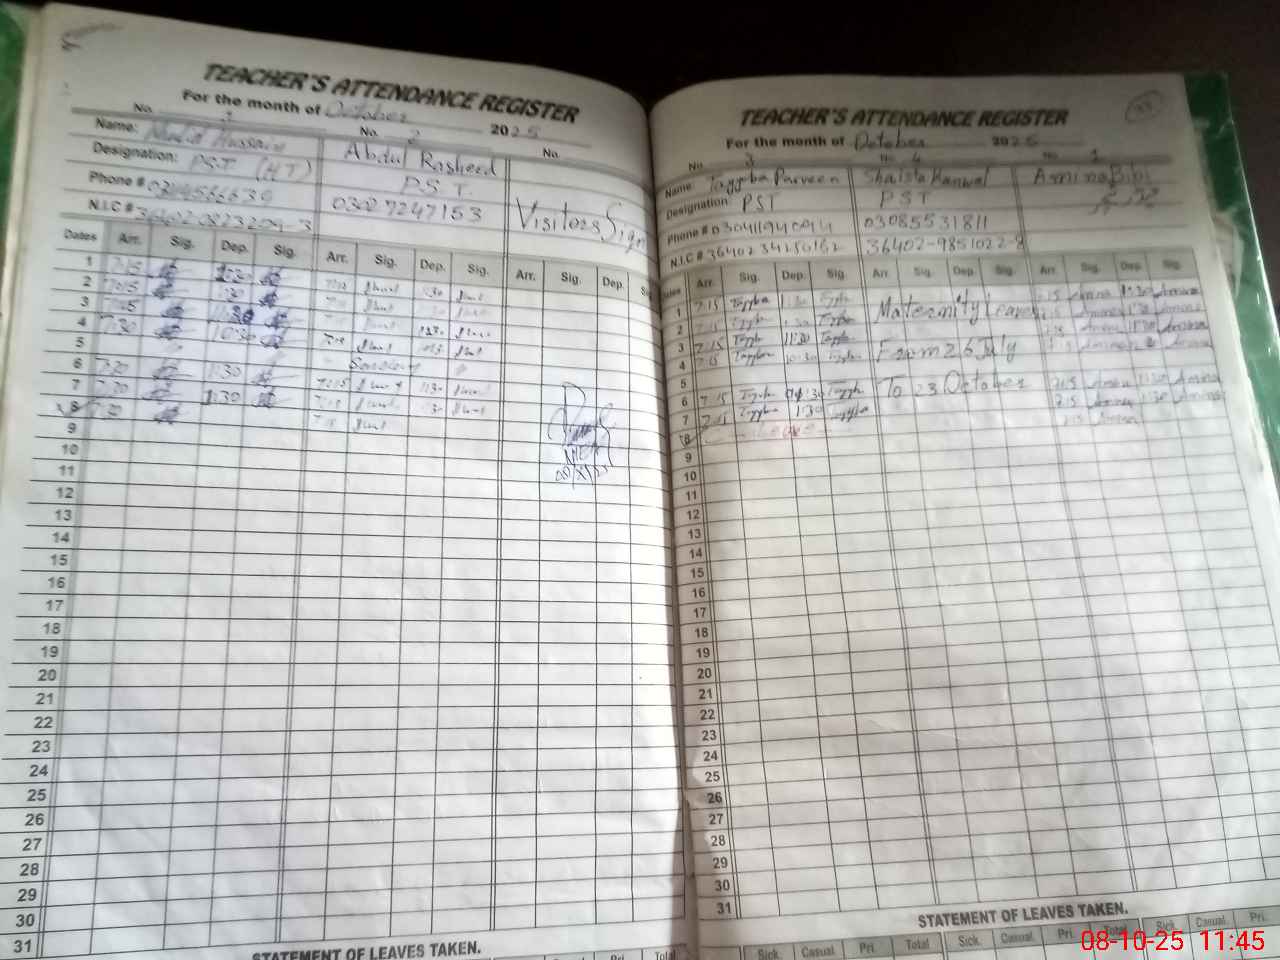 TEACHER'S ATTENDANCE REGISTER
For the month of October 2025
No. 1 No. 2 No.
Name: Khalid Hussain Abdul Rasheed Visitors Sign
Designation: PST (HT) P.S.T.
Phone # 03027247153
N.I.C #
Dates Arr. Sig. Dep. Sig. Arr. Sig. Dep. Sig. Arr. Sig. Dep.
1 7:15 1:30
2 7:15 1:30 1:30
3
4 7:30 10:30
5 Sunday
6 7:20 1:30 7:15 1:30
7 7:20 1:30
8 7:20
9
10
11
12
13
14
15
16
17
18
19
20
21
22
23
24
25
26
27
28
29
30
31
STATEMENT OF LEAVES TAKEN.
Sick. Casual. Pri. Total
TEACHER'S ATTENDANCE REGISTER
For the month of October 2025
No. 3 No. 4 No. 1
Name: Tayyba Parveen Shaista Kanwal Amina Bibi
Designation: PST PST
Phone # 03085531811
N.I.C # 36402
Dates Arr. Sig. Dep. Sig. Arr. Sig. Dep. Sig. Arr. Sig. Dep. Sig.
1 7:15 Tayyba 1:30 Tayyba Maternity Leave 7:15 Amina 1:30 Amina
2 7:15 Tayyba 1:30 Tayyba Amina Amina
3 7:15 Tayyba 11:30 Tayyba From 26 July 7:15 Amina 11:30 Amina
4 7:15 Tayyba 10:30 Tayyba Amina Amina
5
6 7:15 Tayyba 1:30 Tayyba To 23 October 7:15 Amina 1:30 Amina
7 7:15 Tayyba 1:30 Tayyba 7:15 Amina 1:30 Amina
8 Leave 7:15 Amina
9
10
11
12
13
14
15
16
17
18
19
20
21
22
23
24
25
26
27
28
29
30
31
STATEMENT OF LEAVES TAKEN.
Sick. Casual. Pri. Total Sick. Casual. Pri. Total Sick. Casual. Pri.
08-10-25 11:45